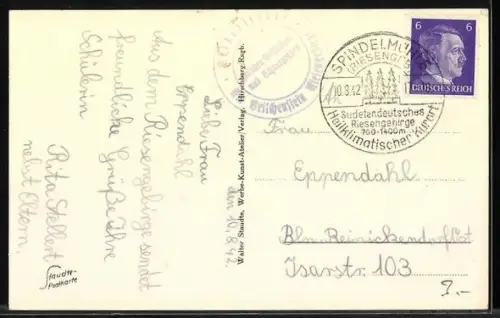 den 10.8.42.
Liebe Frau
Eppendahl
Aus dem Riesengebirge sendet
freundliche Grüße Ihre
Schülerin
Rita Stellert
nebst Eltern.
Staudte-
Postkarte
Walter Staudte, Werbe-Kunst-Atelier/Verlag, Hirschberg-Rsgb.
SPINDELMÜHLE
(RIESENGEB.)
10.8.42
Sudetendeutsches
Riesengebirge
700-1400m
Heilklimatischer Kurort
6 6
DEUTSCHES REICH
Frau
Eppendahl
Bln. Reinickendorf Ost
Isarstr. 103